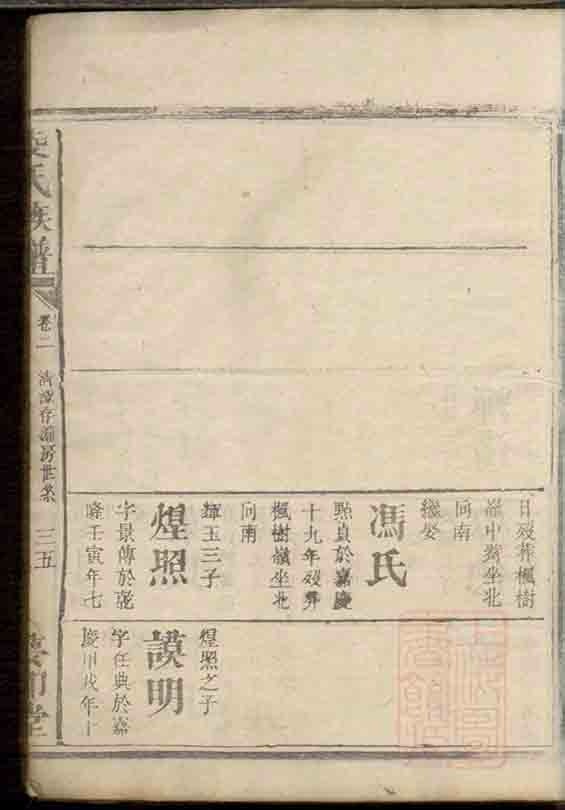 日歿葬楓樹
嶺中塟坐北
向南
繼娶
馮氏
點貞於嘉慶
十九年歿葬
楓樹嶺坐北
向南
輝玉三子
煋照
字景傳於乾
隆壬寅年七
煋照之子
謨明
字任典於嘉
慶甲戌年十
氏族譜
卷二
房世系
三五
堂